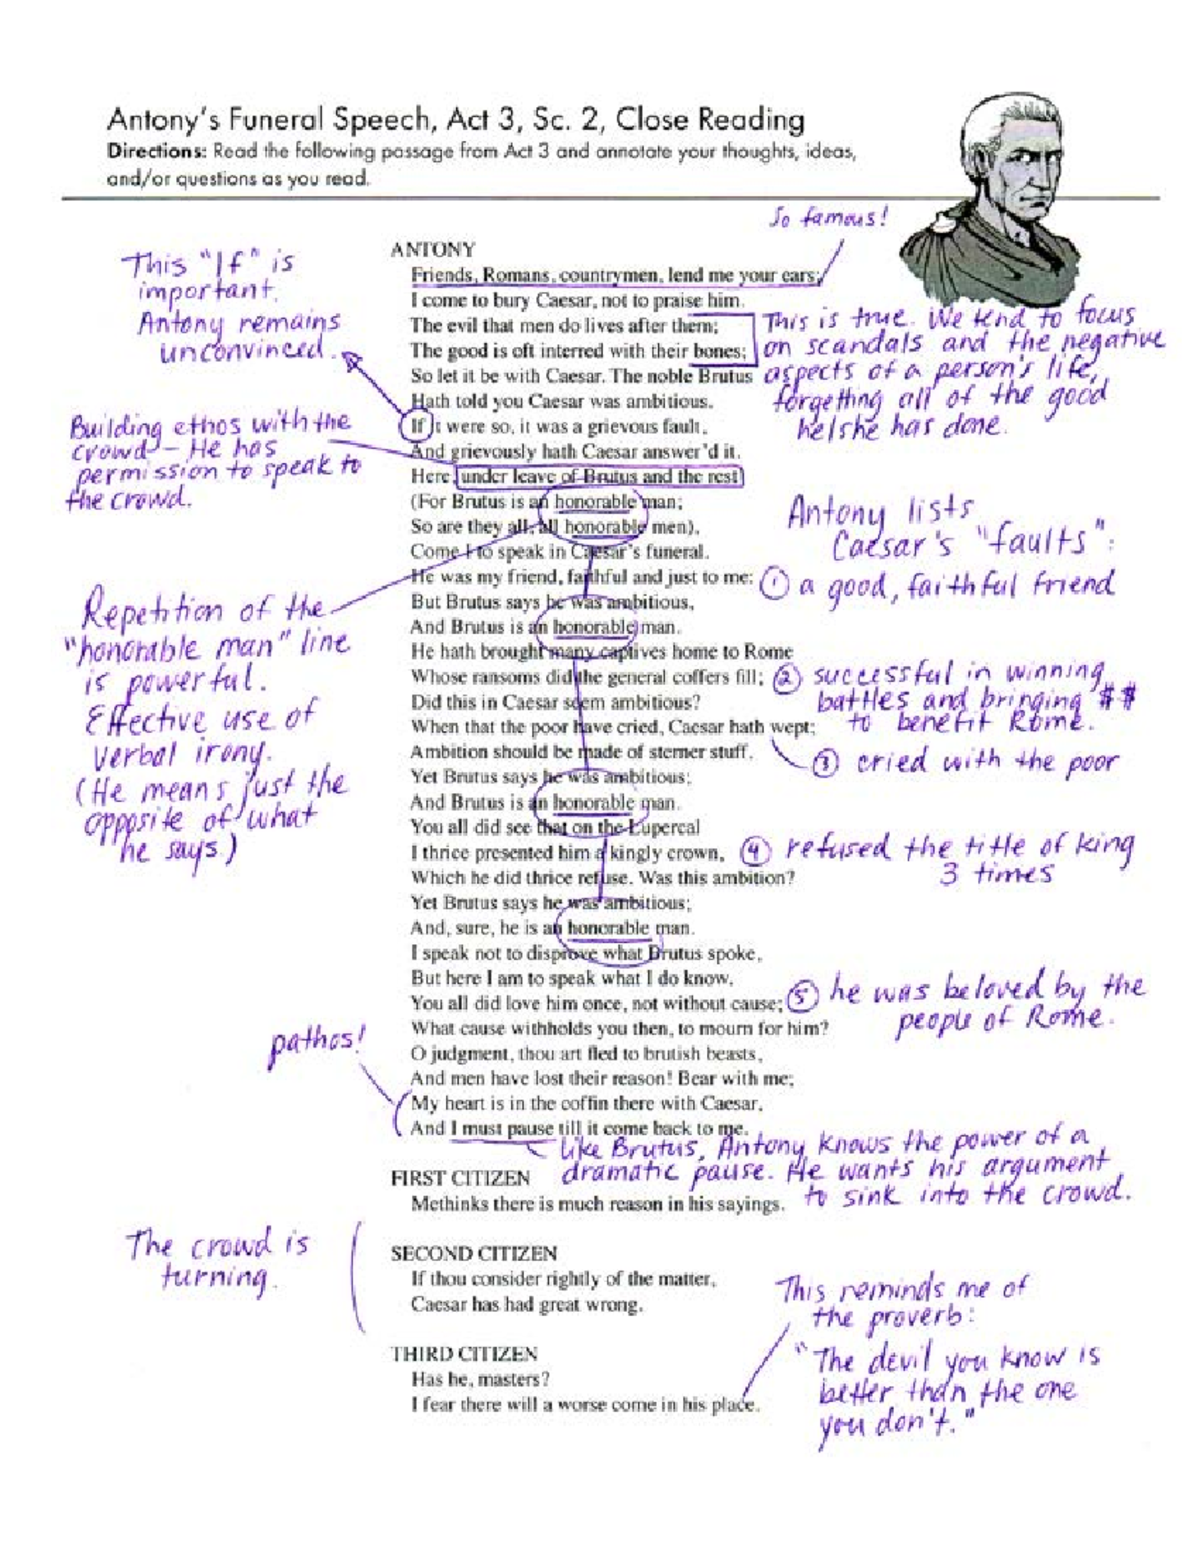 Antony's Funeral Speech, Act 3, Sc. 2, Close Reading
Directions: Read the following passage from Act 3 and annotate your thoughts, ideas,
and/or questions as you read.
So famous!
This "If" is
important.
Antony remains
unconvinced.
Building ethos with the
crowd – He has
permission to speak to
the crowd.
Repetition of the
"honorable man" line
is powerful.
Effective use of
verbal irony.
(He means just the
opposite of what
he says.)
pathos!
The crowd is
turning.
ANTONY
Friends, Romans, countrymen, lend me your ears;
I come to bury Caesar, not to praise him.
The evil that men do lives after them;
The good is oft interred with their bones;
So let it be with Caesar. The noble Brutus
Hath told you Caesar was ambitious.
If it were so, it was a grievous fault,
And grievously hath Caesar answer'd it.
Here, under leave of Brutus and the rest
(For Brutus is an honorable man;
So are they all, all honorable men),
Come I to speak in Caesar's funeral.
He was my friend, faithful and just to me;
But Brutus says he was ambitious,
And Brutus is an honorable man.
He hath brought many captives home to Rome
Whose ransoms did the general coffers fill;
Did this in Caesar seem ambitious?
When that the poor have cried, Caesar hath wept;
Ambition should be made of sterner stuff.
Yet Brutus says he was ambitious;
And Brutus is an honorable man.
You all did see that on the Lupercal
I thrice presented him a kingly crown,
Which he did thrice refuse. Was this ambition?
Yet Brutus says he was ambitious;
And, sure, he is an honorable man.
I speak not to disprove what Brutus spoke,
But here I am to speak what I do know.
You all did love him once, not without cause;
What cause withholds you then, to mourn for him?
O judgment, thou art fled to brutish beasts,
And men have lost their reason! Bear with me;
My heart is in the coffin there with Caesar,
And I must pause till it come back to me.
FIRST CITIZEN
Methinks there is much reason in his sayings.
SECOND CITIZEN
If thou consider rightly of the matter,
Caesar has had great wrong.
THIRD CITIZEN
Has he, masters?
I fear there will a worse come in his place.
This is true. We tend to focus
on scandals and the negative
aspects of a person's life,
forgetting all of the good
he/she has done.
Antony lists
Caesar's "faults":
① a good, faithful friend
② successful in winning
battles and bringing $$
to benefit Rome.
③ cried with the poor
④ refused the title of king
3 times
⑤ he was beloved by the
people of Rome.
Like Brutus, Antony knows the power of a
dramatic pause. He wants his argument
to sink into the crowd.
This reminds me of
the proverb:
"The devil you know is
better than the one
you don't."